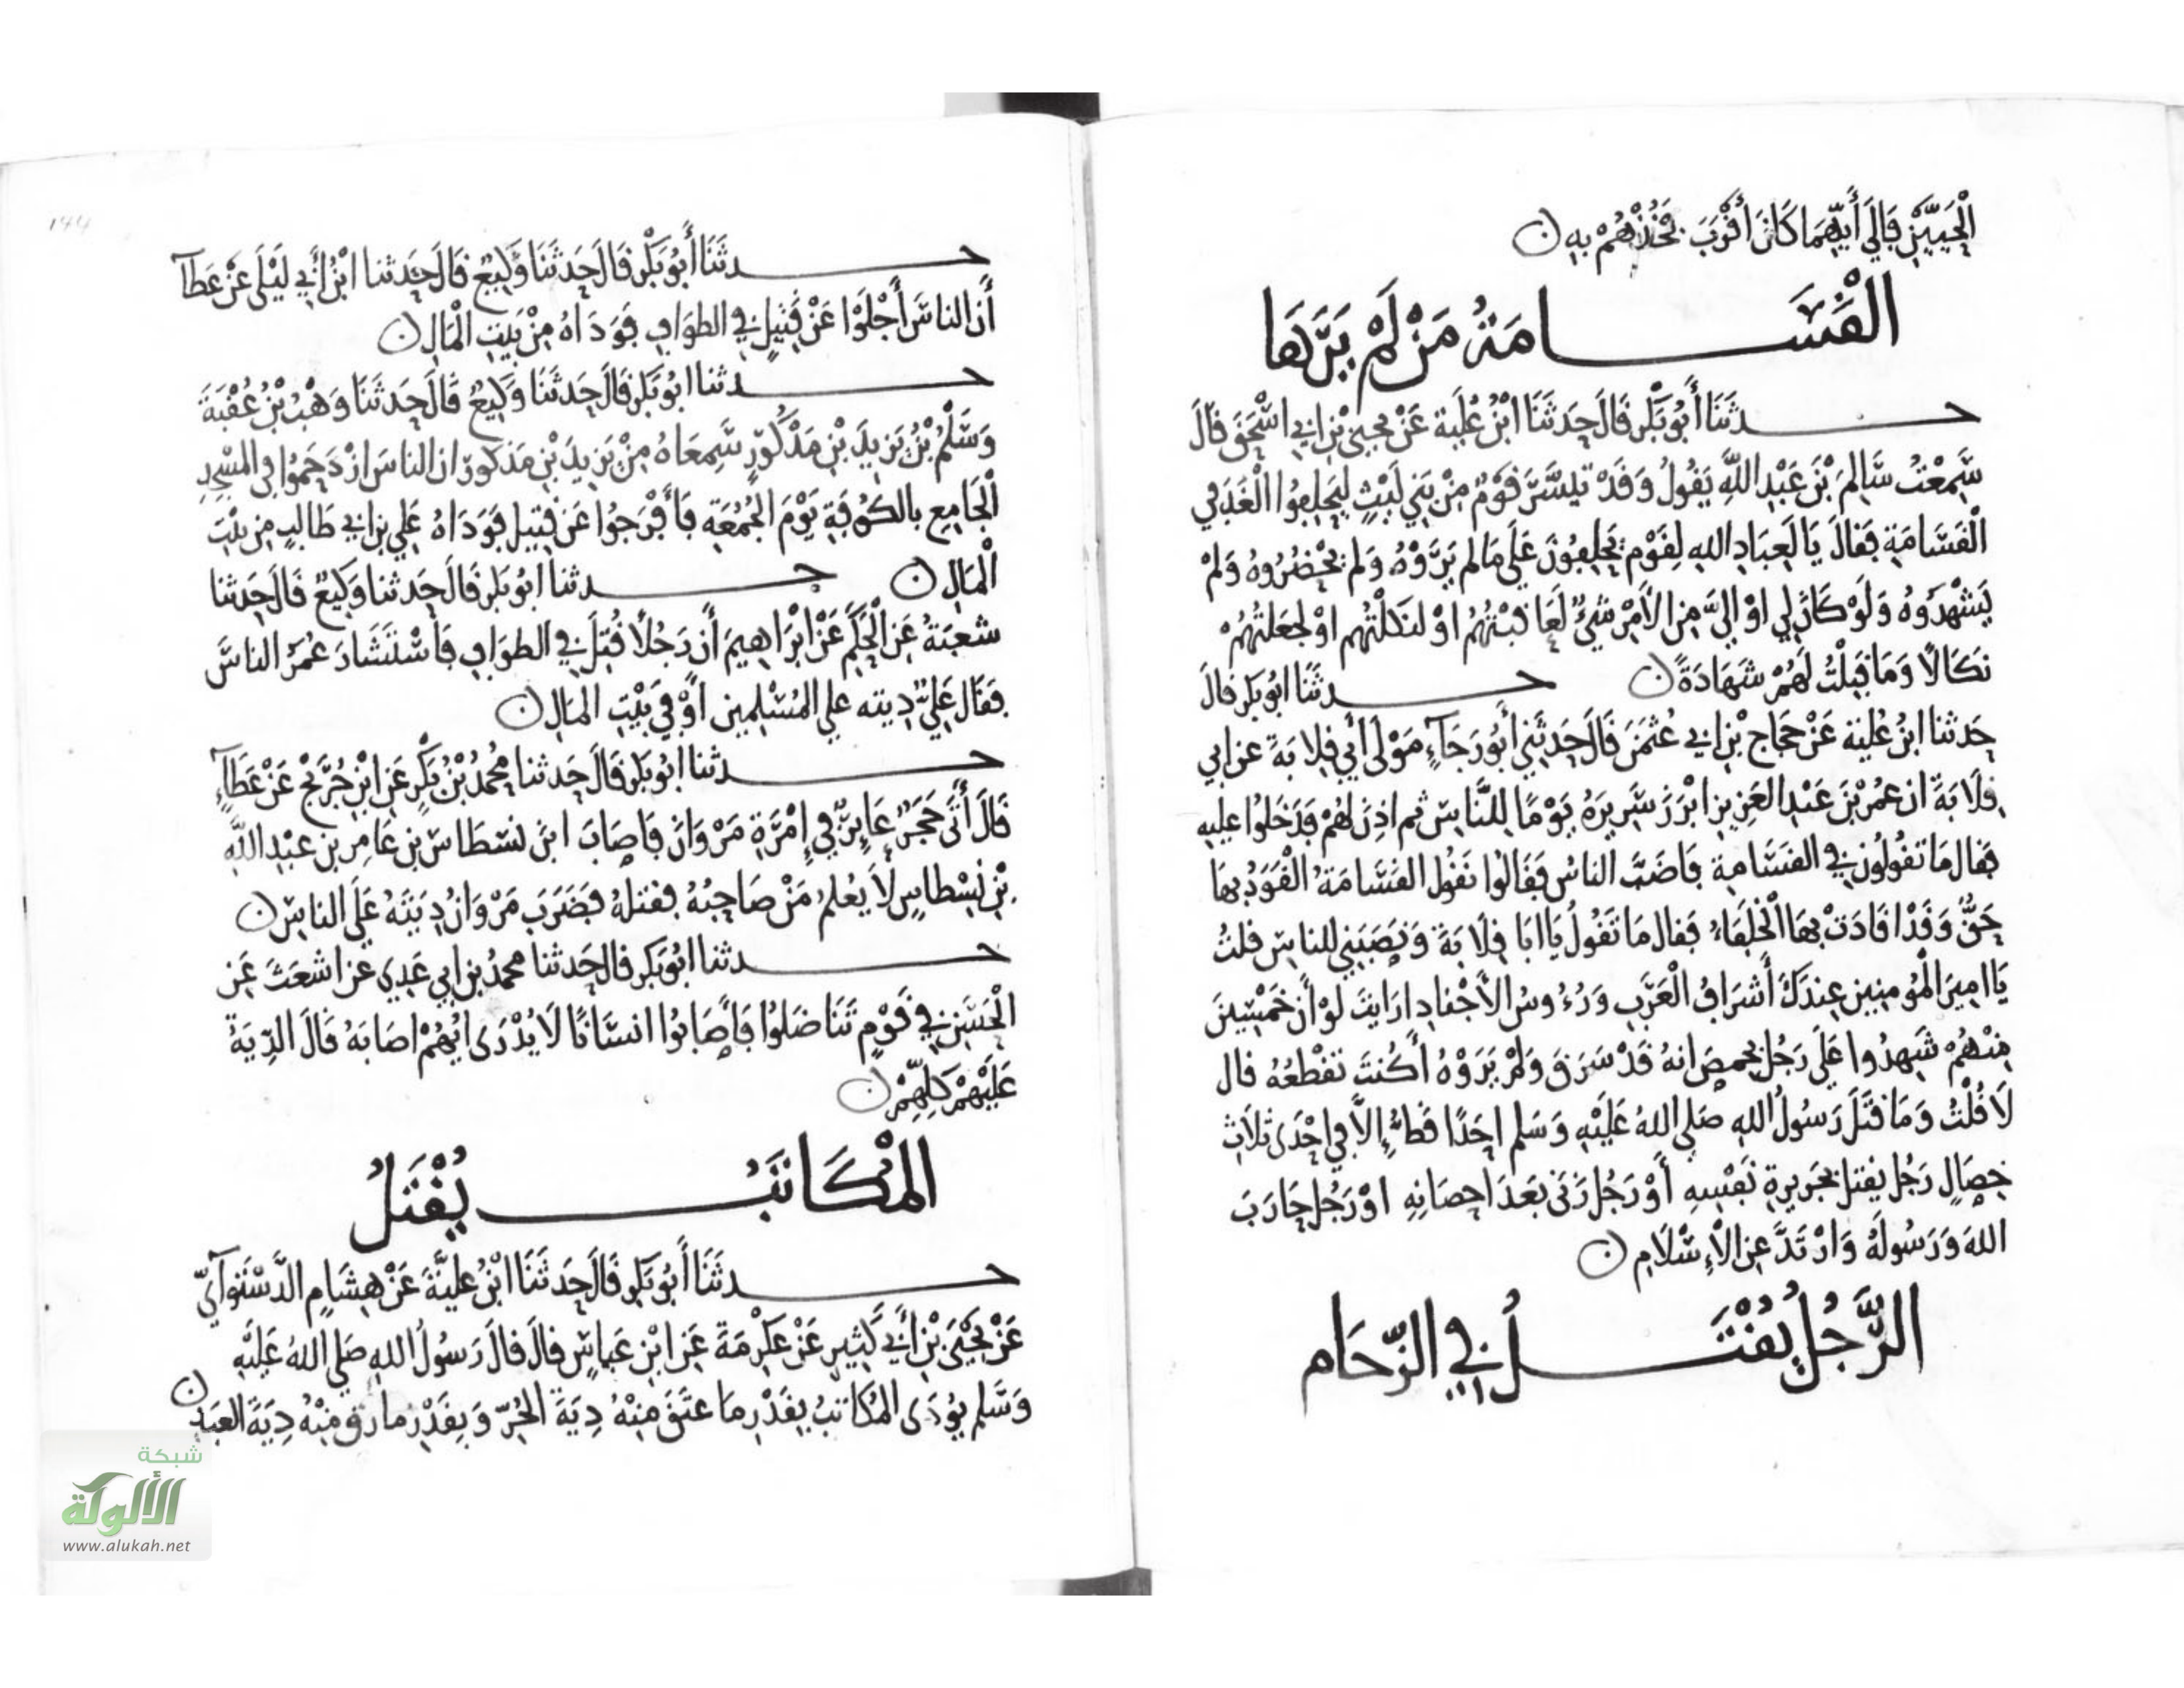 الْحَيَّيْنِ فَإِلَى أَيِّهِمَا كَانَ أَقْرَبَ فَخُذْهُمْ بِهِ
الْقَسَامَةُ مَنْ لَمْ يَرَهَا
حدثَنَا أَبُو بَكْرٍ قَالَ حَدَثَنَا ابْنُ عُلَيَةَ عَنْ يحيى بْنِ ابي اسْحَقَ قَالَ
سَمِعْتُ سَالِمَ بْنَ عَبْدِ اللَّهِ يَقُولُ وَقَدْ تيَسَّرَ قَوْمٌ مِنْ بَنِي لَيْثٍ لِيَحلِفُوا الْغَدَ في
الْقَسَامَةِ فَقَالَ يَا لَعِبَادِ اللهِ لِقَوْمٍ يَحْلِفُونَ عَلَى مَا لم يَرَوْهُ وَلم يَحْضُرُوهُ وَلَمْ
يَشْهَدُوهُ وَلَوْ كَانَ لِي اوْ إِلَيَّ مِنَ الأَمْرِ شَيءٌ لَعَاقَبْتُهُمْ اوْ لنَكَلْتُهم اوْ لجَعَلتُهُمْ
نَكَالًا وَمَا قَبِلْتُ لَهُمْ شَهَادَةً حدثَنَا ابُو بَكر قالَ
حَدثنا ابنُ عُليَة عَنْ حَجَاجِ بْنِ ابي عُثمَنَ قَالَ حَدثَنِي أَبُو رَجَآءٍ مَوْلَى أَبِي قِلَابَةَ عن ابي
قِلَابَةَ ان عمُرَ بْنَ عَبْدِ العَزِيزِ ابْرَزَ سَرِيرَهُ يَوْمًا لِلنَّاسِ ثم اذِنَ لهُمْ فَدَخَلُوا عليهِ
فقال مَا تقُولُونَ في القسَامةِ فَاضَبَّ الناسُ فَقَالُوا نَقُول القسَامَةُ الْقَوَدُ بها
حَقٌّ وَقَدْ اقَادَتْ بهَا الْخلَفَاءُ فقال مَا تَقُولُ يَا ابَا قِلَابَةَ وَنَصَبَنِي للناسِ قلتُ
يَا امِيرَ الْمُومِنِين عِندَكَ أَشْرَافُ الْعَرَبِ وَرُءُوسُ الأَجْنادِ ارَايتَ لَوْ أَن خَمْسِينَ
مِنْهُمْ شَهِدُوا عَلَى رَجُلٍ بحمصَ انهُ قَدْ سَرَقَ وَلَمْ يَرَوْهُ أَكُنتَ تقْطَعُهُ قال
لَا قُلْتُ وَمَا قَتَلَ رَسُولُ اللهِ صَلى اللهُ عَلَيْهِ وَسَلم احَدًا قَطُّ إِلاَّ فِي احْدَى ثلَاثِ
خِصَالٍ رَجُل يقتل بجَرِيرةِ نَفْسِهِ أَوْ رَجُل زَنَى بَعدَ احصَانِهِ اوْ رَجُل حَارَبَ
اللهَ وَرَسُولَهُ وَارْتَدَّ عنِ الْإِسْلَامِ
الرَّجُلُ يُقْتَلُ فِي الزِّحَام
حدثَنَا أَبُو بَكْرٍ قَالَ حَدَثَنَا وَكِيعٌ قَالَ حَدثنا ابْنُ أَبِي لَيْلَى عَنْ عَطَآ
أَن الناسَ أَجْلَوْا عَنْ قَتِيلٍ فِي الطوَافِ فَوَدَاهُ مِنْ بَيْتِ الْمَالِ
حدثنا ابُو بَكْر قَالَ حَدثَنَا وَكِيعٌ قَالَ حَدثَنَا وَهْبُ بْنُ عُقْبَةَ
وَسَلْمُ بْنُ يَزِيدَ بْنِ مَذْكُورٍ سَمِعَاهُ مِنْ يَزِيدَ بْنِ مَذكور ان الناسَ ازْدَحَمُوا في المسْجِدِ
الْجَامِعِ بالكُوفَةِ يَوْمَ الجُمُعَةِ فَأَفْرَجُوا عَن قَتِيل فَوَدَاهُ عَلي بن ابي طَالبٍ مِن بَيْتِ
الْمَالِ حدثنا ابُو بَكر قَالَ حَدثنا وَكِيعٌ قَالَ حَدثنا
شعبَةُ عَنِ الْحَكَمِ عَنْ ابْرَاهِيمَ أَن رَجُلاً قُتِلَ فِي الطوَافِ فَاسْتَشَارَ عُمَرُ الناسَ
فقَال عَلِيٌّ دِيته على المُسْلِمين اوْ في بَيْتِ المَال
حدثنا ابُو بَكر قَالَ حَدثنا مُحَمدُ بْنُ بَكْرٍ عَنِ ابْنِ جُرَيْجٍ عَنْ عَطَآءٍ
قَالَ أَتَى حَجَرٌ عَايِرٌ فِي إِمْرَةِ مَرْوَانَ فَاصَابَ ابنَ نسْطَاس بنِ عَامِر بن عبْدِ اللَّهِ
بْنِ نِسْطاسٍ لاَ يُعْلَمُ مَنْ صَاحِبُهُ فقتلهُ فضَرَبَ مَرْوَانُ دِيَتَهُ عَلَى الناسِ
حدثنا ابُو بَكر قال حَدثنا محمدُ بن ابي عَدِي عن اشعَثَ عَنِ
الْحَسَنِ فِي قَوْمٍ تَنَاضَلُوا فَأَصَابُوا انسَانًا لَا يُدْرَى ايُّهُمْ اصَابَهُ قَالَ الدِّيَةُ
عَلَيْهِمْ كلِّهِمْ
الْمُكَاتَبُ يُقْتَلُ
حدثَنَا أَبُو بَكر قَالَ حَدثَنَا ابْنُ عليَّةَ عَنْ هِشَامٍ الدَّسْتَوَآئِيِّ
عَنْ يَحْيَى بْنِ أَبِي كَثِيرٍ عَنْ عكْرِمَةَ عَنِ ابْنِ عَباسٍ قالَ قالَ رَسُولُ اللهِ صَلى اللهُ عَلَيْهِ
وَسَلم يُودَى المُكاتَبُ بِقَدْرِ مَا عتَقَ مِنْهُ دِيَةَ الحُرِّ وَبِقَدْرِ ما رق مِنْهُ دِيَةَ العَبدِ
شبكة
الألوكة
www.alukah.net